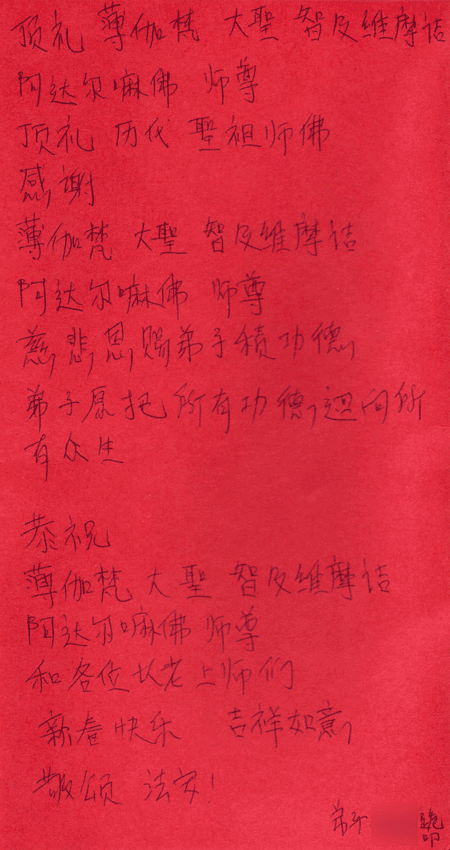 顶礼 薄伽梵 大聖 智及维摩诘
阿达尔嘛佛 师尊
顶礼 历代 聖祖师佛
感謝
薄伽梵 大聖 智及维摩诘
阿达尔嘛佛 师尊
慈悲恩賜弟子積功德,
弟子原把所有功德,迴向所
有众生
恭祝
薄伽梵 大聖 智及维摩诘
阿达尔嘛佛 师尊
和各位长老上师们
新春快乐 吉祥如意,
敬颂 法安!
弟子 叩